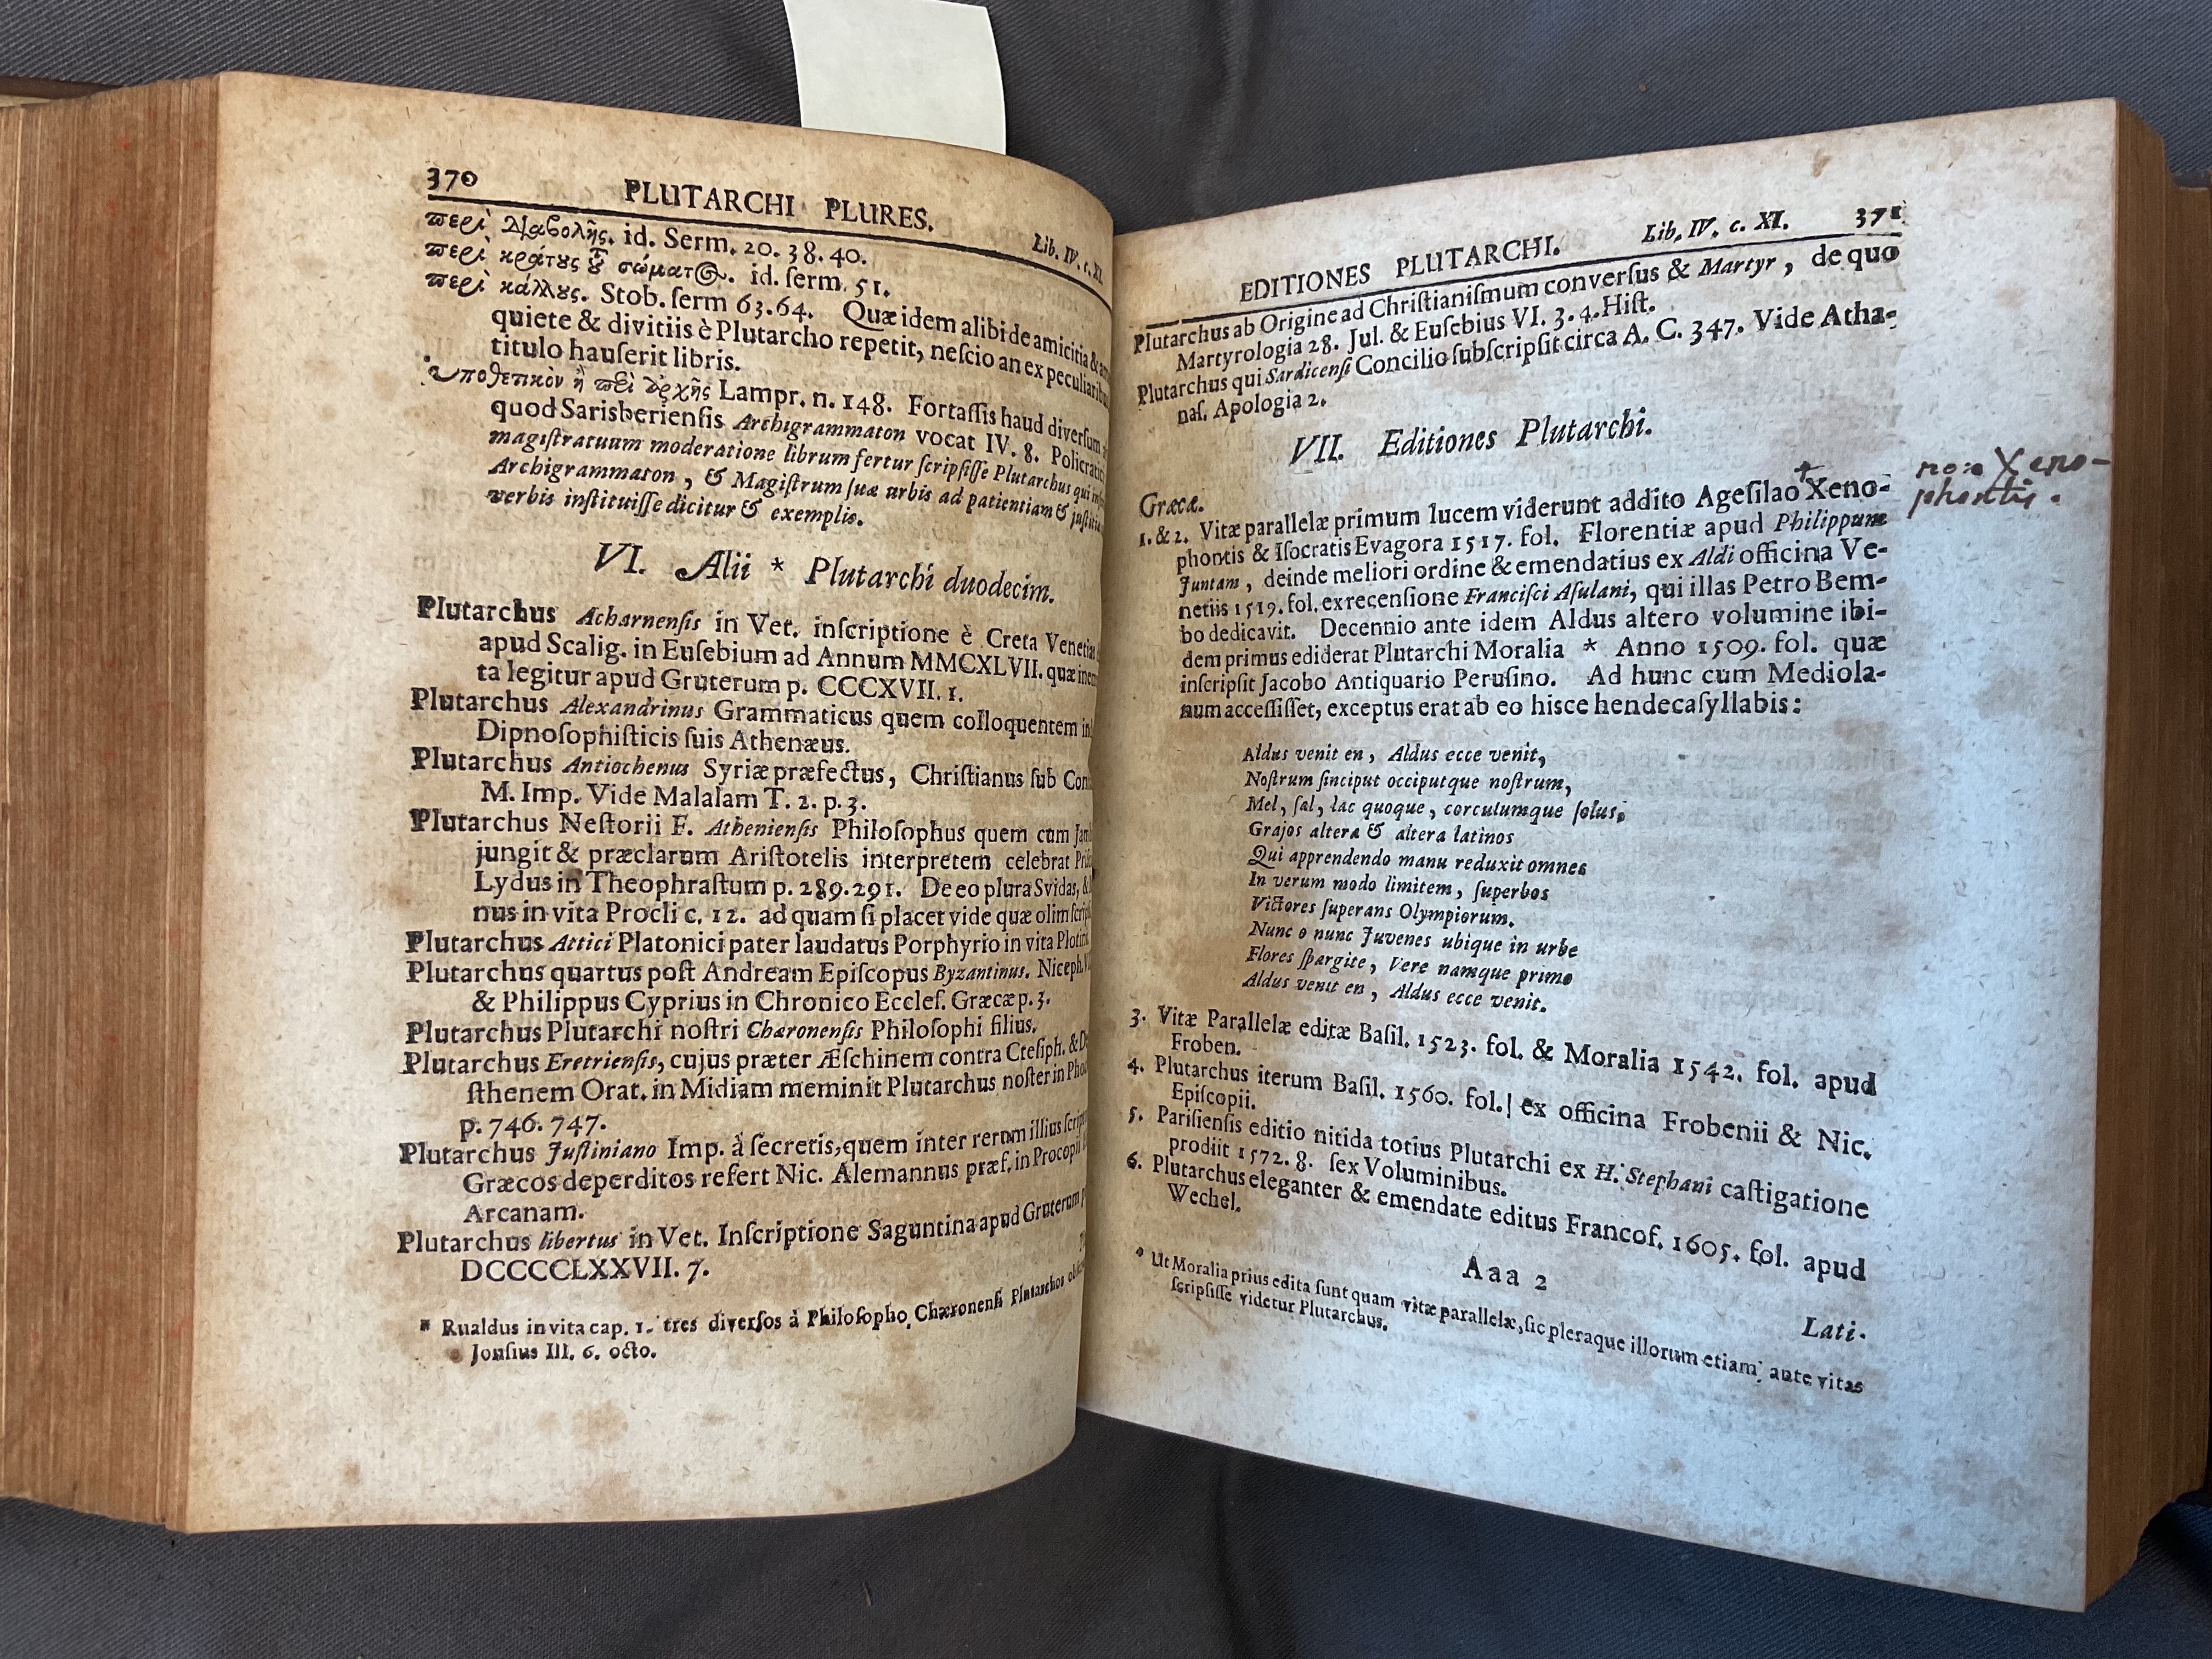 370 PLUTARCHI PLURES. Lib. IV. c. XI.
περὶ Διαβολῆς. id. Serm. 20. 38. 40.
περὶ κράτους τοῦ σώματος. id. ſerm. 51.
περὶ κάλλους. Stob. ſerm 63. 64. Quæ idem alibi de amicitia &
quiete & divitiis è Plutarcho repetit, neſcio an ex peculiaribus
titulo hauſerit libris.
ὑποθετικὸν ἢ περὶ ἀρχῆς Lampr. n. 148. Fortaſſis haud diverſum
quod Sarisberienſis Archigrammaton vocat IV. 8. Policratici
magiſtratuum moderatione librum fertur ſcripſiſſe Plutarchus qui
Archigrammaton, & Magiſtrum ſuæ urbis ad patientiam &
verbis inſtituiſſe dicitur & exemplis.
VI. Alii * Plutarchi duodecim.
Plutarchus Acharnenſis in Vet. inſcriptione è Creta Venetias
apud Scalig. in Euſebium ad Annum MMCXLVII. quæ
ta legitur apud Gruterum p. CCCXVII. 1.
Plutarchus Alexandrinus Grammaticus quem colloquentem
Dipnoſophiſticis ſuis Athenæus.
Plutarchus Antiochenus Syriæ præfectus, Chriſtianus ſub
M. Imp. Vide Malalam T. 2. p. 3.
Plutarchus Neſtorii F. Athenienſis Philoſophus quem cum
jungit & præclarum Ariſtotelis interpretem celebrat
Lydus in Theophraſtum p. 289. 291. De eo plura Svidas,
nus in vita Procli c. 12. ad quam ſi placet vide quæ olim
Plutarchus Attici Platonici pater laudatus Porphyrio in vita Plotini
Plutarchus quartus poſt Andream Epiſcopus Byzantinus. Niceph.
& Philippus Cyprius in Chronico Eccleſ. Græcæ p. 3.
Plutarchus Plutarchi noſtri Chæronenſis Philoſophi filius.
Plutarchus Eretrienſis, cujus præter Æſchinem contra Cteſiph. &
ſthenem Orat. in Midiam meminit Plutarchus noſter in
p. 746. 747.
Plutarchus Juſtiniano Imp. à ſecretis, quem inter rerum illius
Græcos deperditos refert Nic. Alemannus præf. in Procopii
Arcanam.
Plutarchus libertus in Vet. Inſcriptione Saguntina apud Gruterum
DCCCCLXXVII. 7.
* Rualdus in vita cap. 1. tres diverſos à Philoſopho Chæronenſi Plutarchos
Jonſius III. 6. octo.
EDITIONES PLUTARCHI. Lib. IV. c. XI. 371
Plutarchus ab Origine ad Chriſtianiſmum converſus & Martyr, de quo
Martyrologia 28. Jul. & Euſebius VI. 3. 4. Hiſt.
Plutarchus qui Sardicenſi Concilio ſubſcripſit circa A. C. 347. Vide Atha-
naſ. Apologia 2.
VII. Editiones Plutarchi.
Græcæ.
1. & 2. Vitæ parallelæ primum lucem viderunt addito Ageſilao + Xeno-
non Xeno-
phontis.
phontis & Iſocratis Evagora 1517. fol. Florentiæ apud Philippum
Juntam, deinde meliori ordine & emendatius ex Aldi officina Ve-
netiis 1519. fol. ex recenſione Franciſci Aſulani, qui illas Petro Bem-
bo dedicavit. Decennio ante idem Aldus altero volumine ibi-
dem primus ediderat Plutarchi Moralia * Anno 1509. fol. quæ
inſcripſit Jacobo Antiquario Peruſino. Ad hunc cum Mediola-
num acceſſiſſet, exceptus erat ab eo hisce hendecaſyllabis:
Aldus venit en, Aldus ecce venit,
Noſtrum ſinciput occiputque noſtrum,
Mel, ſal, lac quoque, corculumque ſolus,
Grajos altera & altera latinos
Qui apprendendo manu reduxit omnes
In verum modo limitem, ſuperbos
Victores ſuperans Olympiorum.
Nunc o nunc Juvenes ubique in urbe
Flores ſpargite, Vere namque primo
Aldus venit en, Aldus ecce venit.
3. Vitæ Parallelæ editæ Baſil. 1523. fol. & Moralia 1542. fol. apud
Froben.
4. Plutarchus iterum Baſil. 1560. fol. ex officina Frobenii & Nic.
Epiſcopii.
5. Pariſienſis editio nitida totius Plutarchi ex H. Stephani caſtigatione
prodiit 1572. 8. ſex Voluminibus.
6. Plutarchus eleganter & emendate editus Francof. 1605. fol. apud
Wechel.
Aaa 2
Lati-
* Ut Moralia prius edita ſunt quam vitæ parallelæ, ſic pleraque illorum etiam ante vitas
ſcripſiſſe videtur Plutarchus.